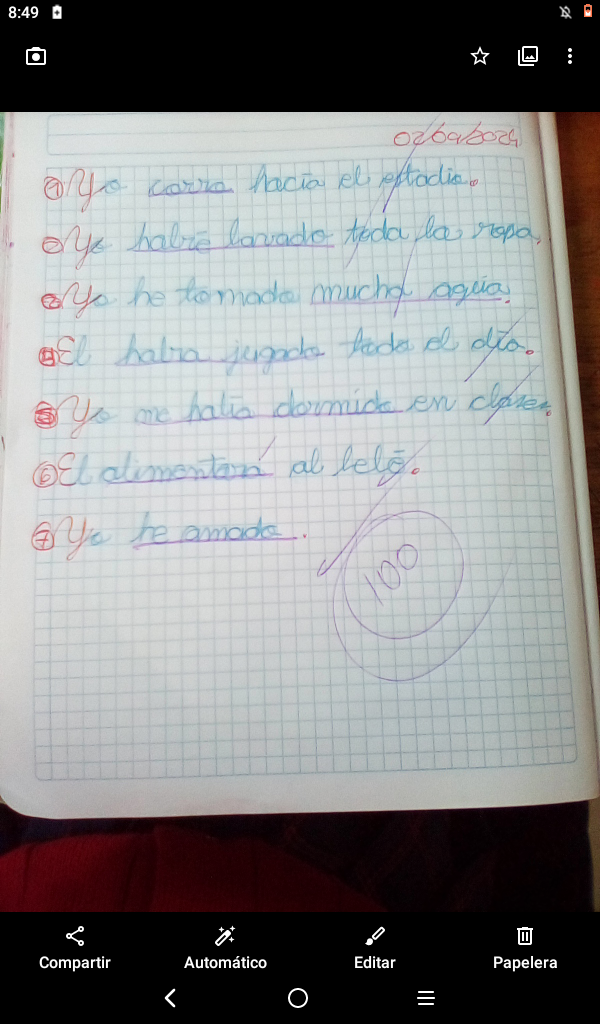 8:49
02/09/2024
① Yo corro hacia el estadio.
② Yo habré lavado toda la ropa.
③ Yo he tomado mucha agua.
④ El habra jugado todo el día.
⑤ Yo me habia dormido en clases.
⑥ El alimentará al bebé.
⑦ Yo he amado.
100
Compartir
Automático
Editar
Papelera